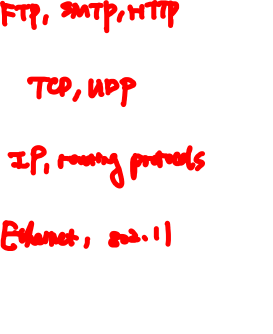 FTP, SMTP, HTTP
TCP, UDP
IP, routing protocols
Ethernet, 802.11